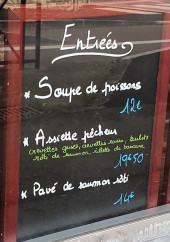 Entrées
* Soupe de poissons
12€
* Assiette pêcheur
crevettes grises, crevettes roses, bulots
rôti de saumon, rillette de
19€50
* Pavé de saumon rôti
14€